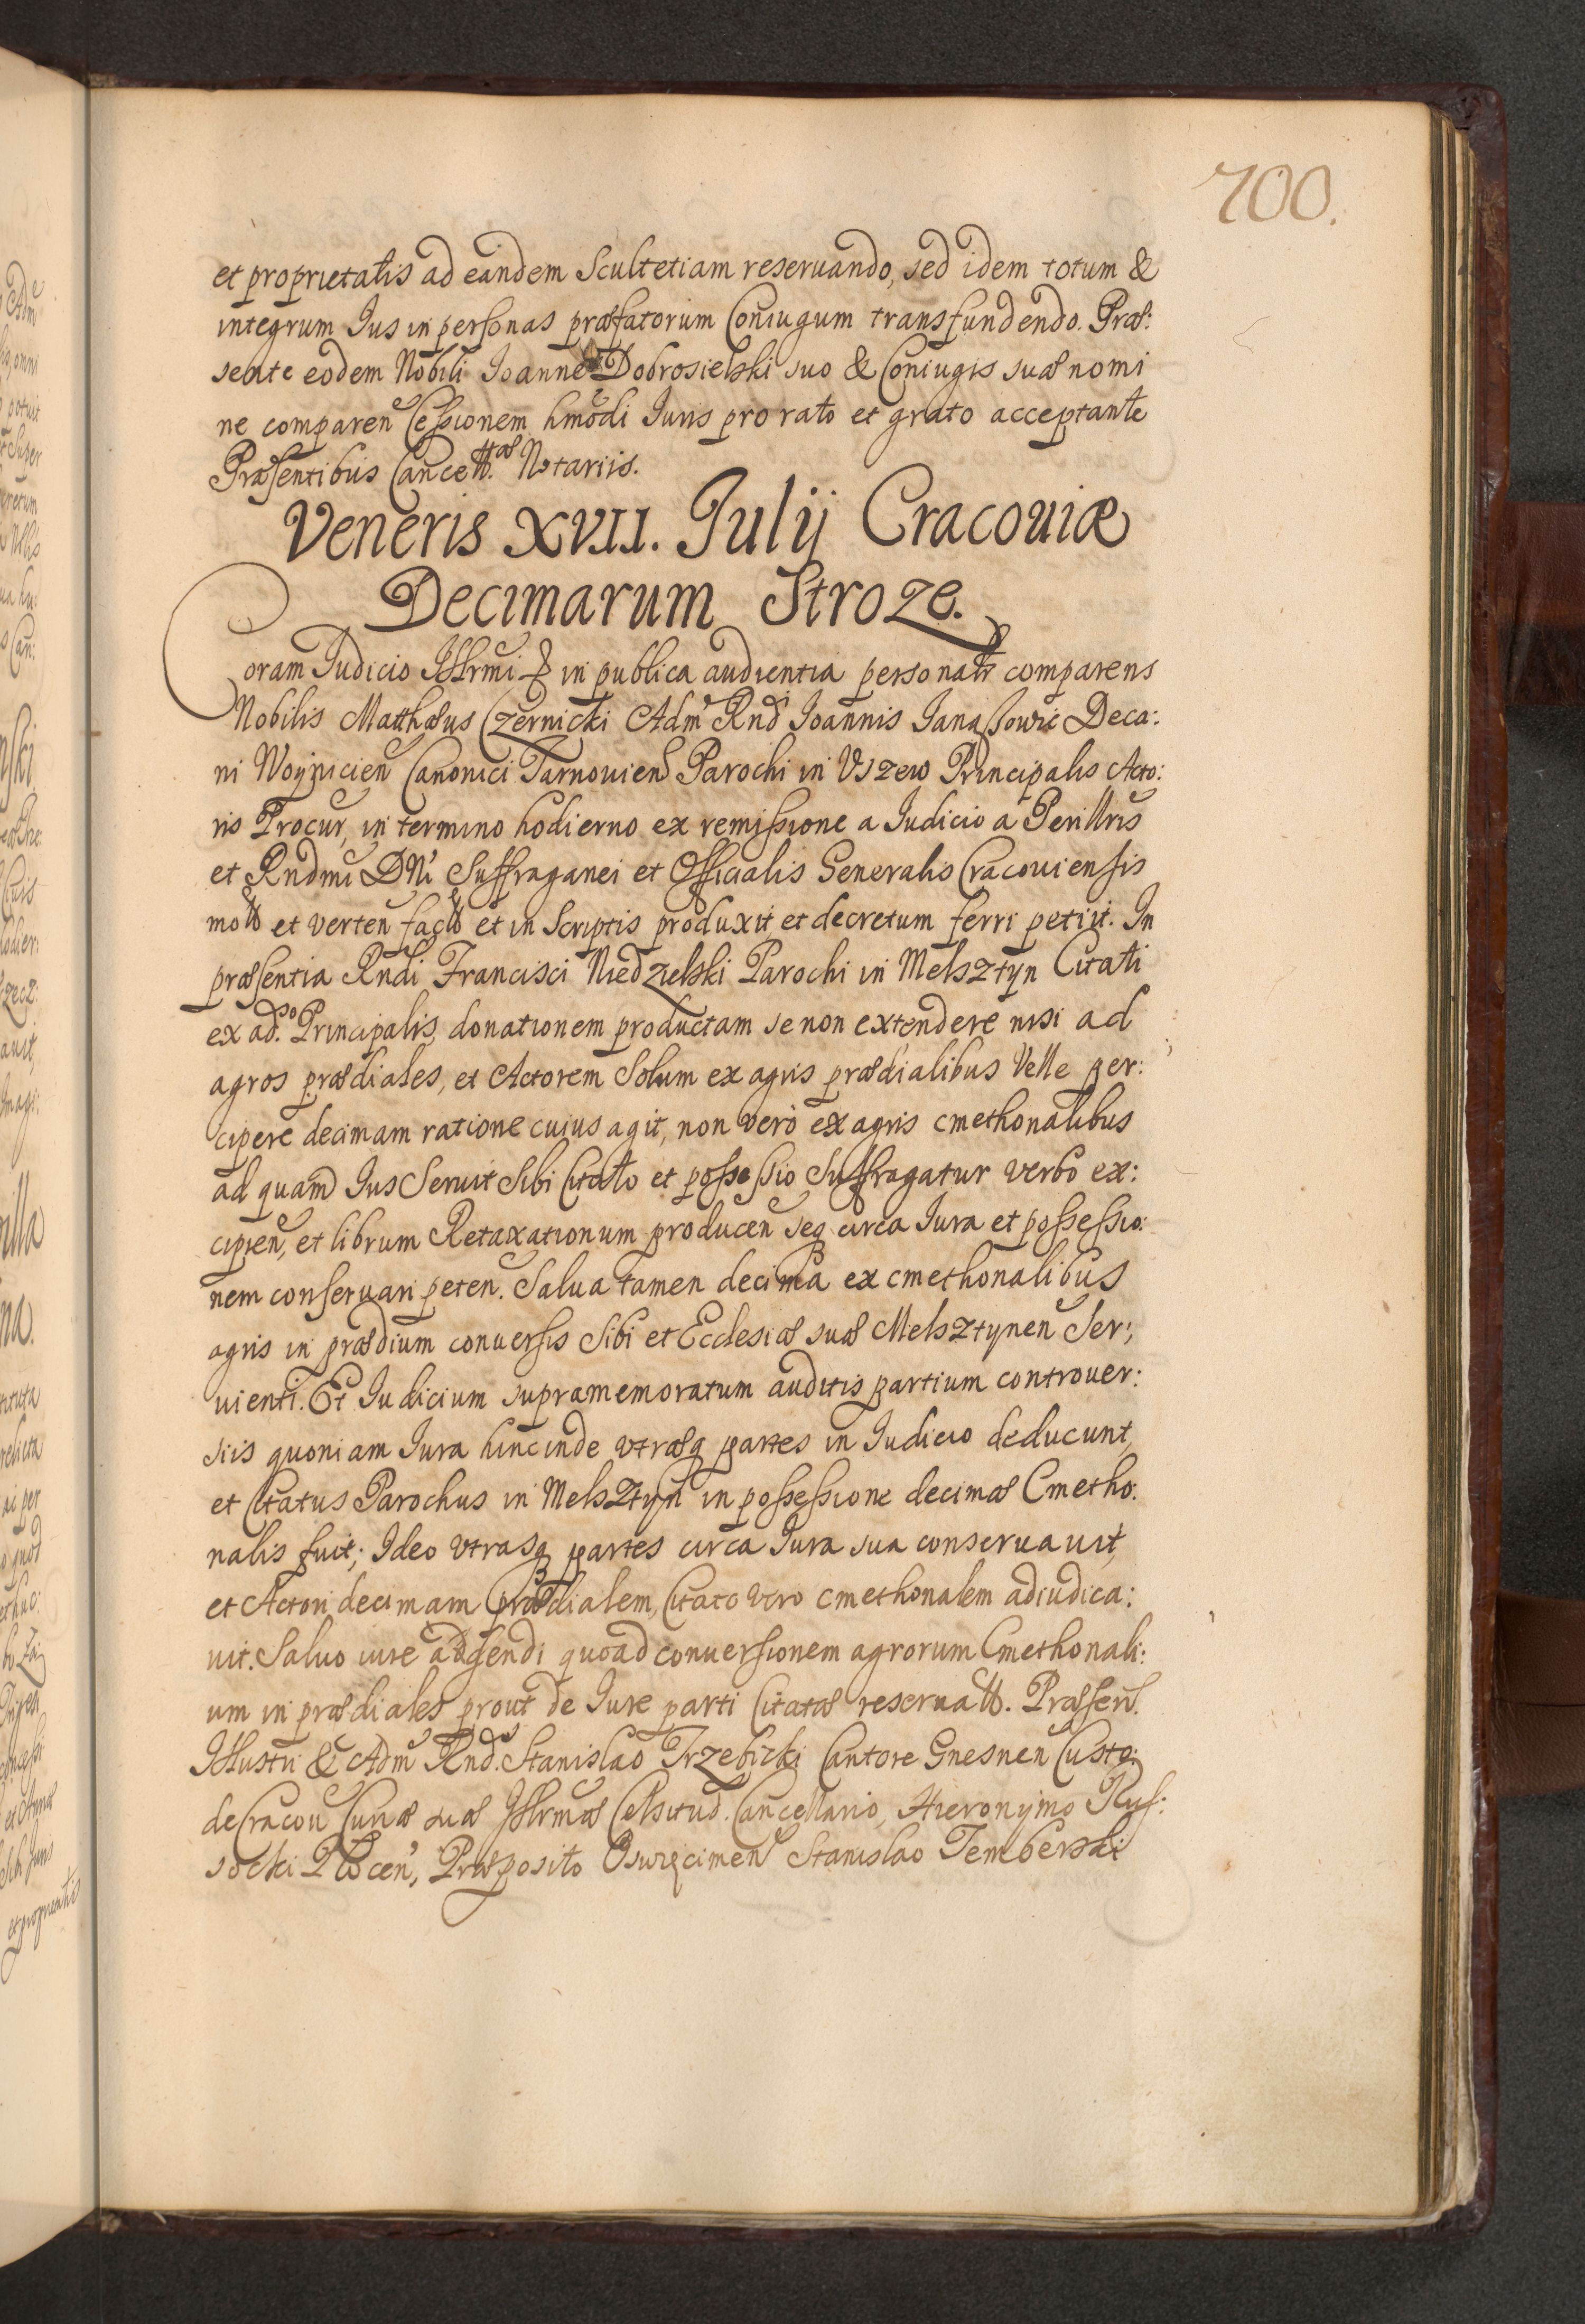 700.
et proprietatis ad eandem Scultetiam reseruando, sed idem totum &
integrum Ius in personas præfatorum Coniugum transfundendo. Præ:
sente eodem Nobili Ioanne Dobrosielski suo & Coniugis suæ nomi
ne comparen Cessionem hmodi Iuris pro rato et grato acceptante
Præsentibus Cancell. Notariis.
Veneris XVII. Iulij Cracouiæ
Decimarum Stroze.
Coram Iudicio Illrmi & in publica audientia personalr comparens
Nobilis Matthæus Czernicki Adm Rnd Ioannis Ianaszowic Deca:
ni Woynicien Canonici Tarnouien Parochi in Uszew Principalis Acto:
ris Procur, in termino hodierno ex remissione a Iudicio a Perillris
et Rndmi DNi Suffraganei et Officialis Generalis Cracouiensis
et verten et in Scriptis produxit et decretum ferri petiit. In
præsentia Rndi Francisci Niedzielski Parochi in Melsztyn Citati
ex ad.so Principalis, donationem productam se non extendere nisi ad
agros prædiales, et Actorem Solum ex agris prædialibus Velle per:
cipere decimam ratione cuius agit, non vero ex agris cmethonalibus
ad quam Ius Seruit Sibi Citato et possessio Suffragatur verbo ex:
cipien, et librum Retaxationum producen seq circa Iura et possessio:
nem conseruari peten. Salua tamen decima ex cmethonalibus
agris in prædium conuersis Sibi et Ecclesiæ suæ Melsztynen Ser:
uienti. Et Iudicium supramemoratum auditis partium controuer:
siis quoniam Iura hincinde vtræq partes in Iudicio deducunt,
et Citatus Parochus in Melsztyn in possessione decimæ Cmetho:
nalis fuit; Ideo vtrasq partes circa Iura sua conseruauit,
et Actori decimam prædialem, Citato vero cmethonalem adiudica:
uit. Saluo iure quoad conuersionem agrorum Cmethonali:
um in prædiales prout de Iure parti Citatæ reseruatt. Præsen.
Illustri & Adm Rnd. Stanislao Trzebicki Cantore Gnesnen Custo:
de Cracou Curiæ suæ Illrmæ Celsitud. Cancellario, Hieronymo Ruf:
socki Plocen, Præposito Oswięcimen Stanislao Temberski